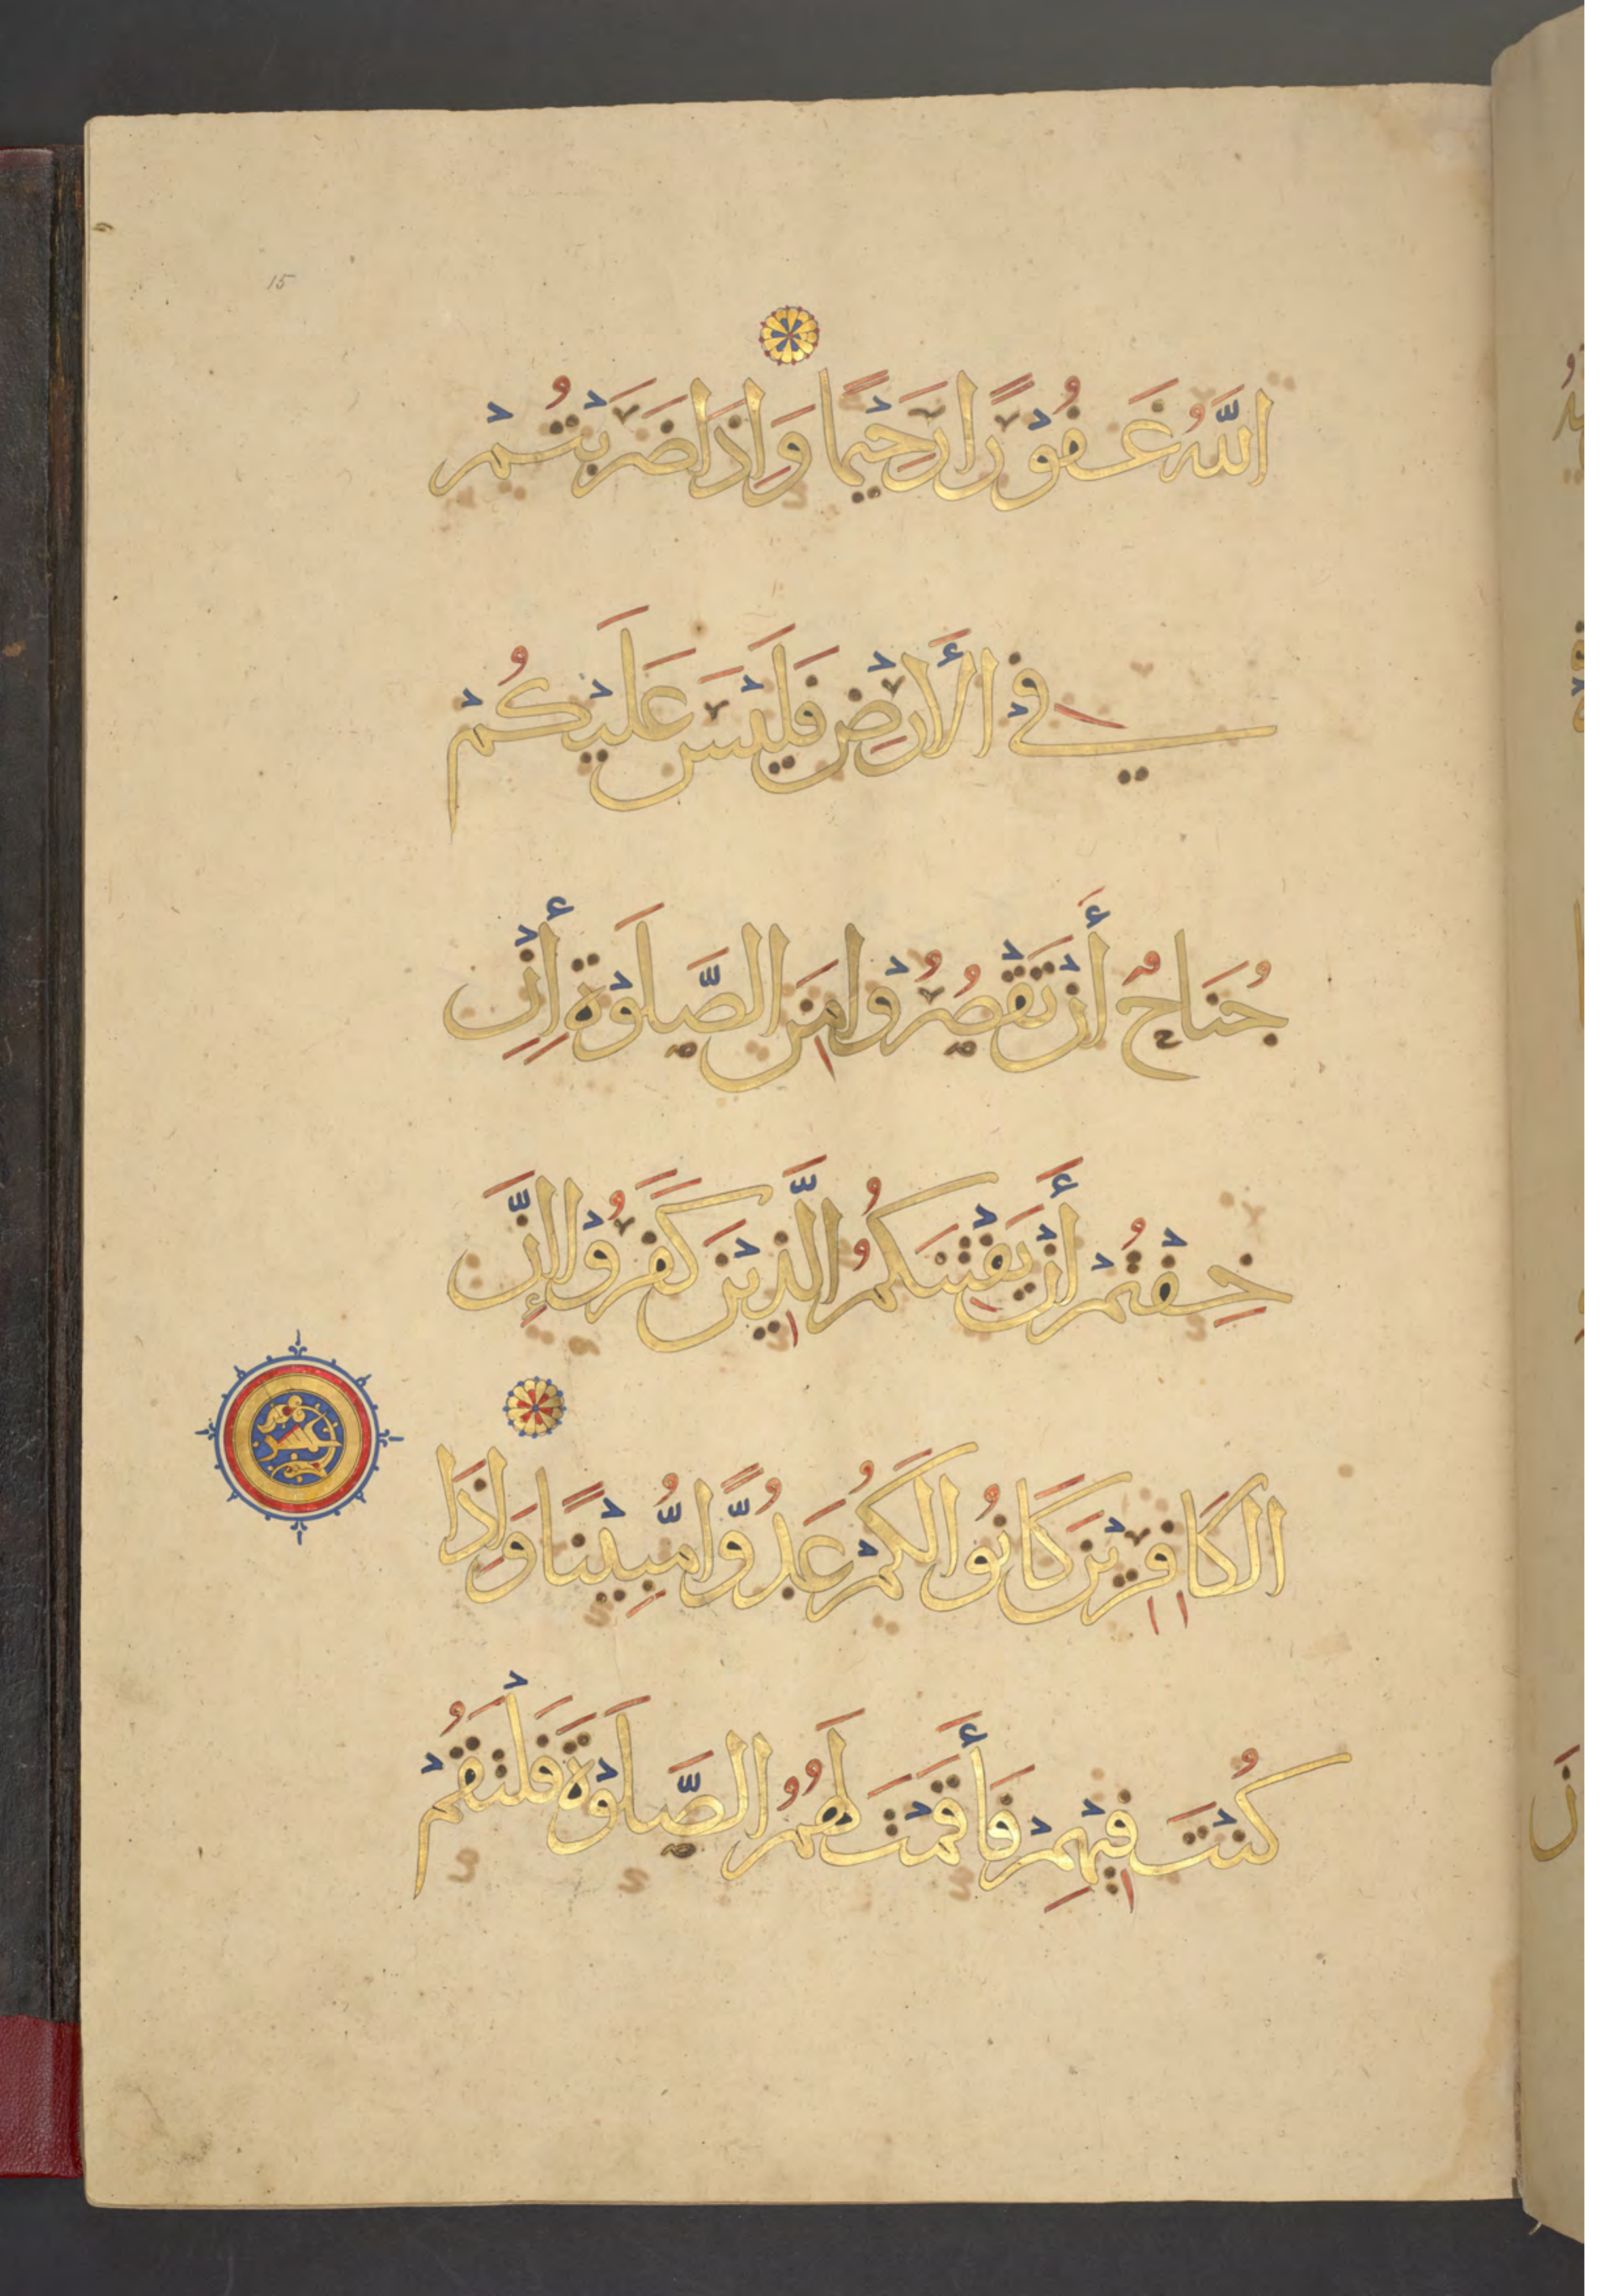 15
اللَّهُ غَفُوْرًا رَحِيْمًا وَإِذَا ضَرَبْتُمْ
فِي الْأَرْضِ فَلَيْسَ عَلَيْكُمْ
جُنَاحٌ أَنْ تَقْصُرُوْا مِنَ الصَّلَوٰةِ إِنْ
خِفْتُمْ أَنْ يَفْتِنَكُمُ الَّذِيْنَ كَفَرُوْا إِنَّ
الْكَافِرِيْنَ كَانُوا لَكُمْ عَدُوًّا مُّبِيْنًا وَإِذَا
كُنْتَ فِيْهِمْ فَأَقَمْتَ لَهُمُ الصَّلَوٰةَ فَلْتَقُمْ